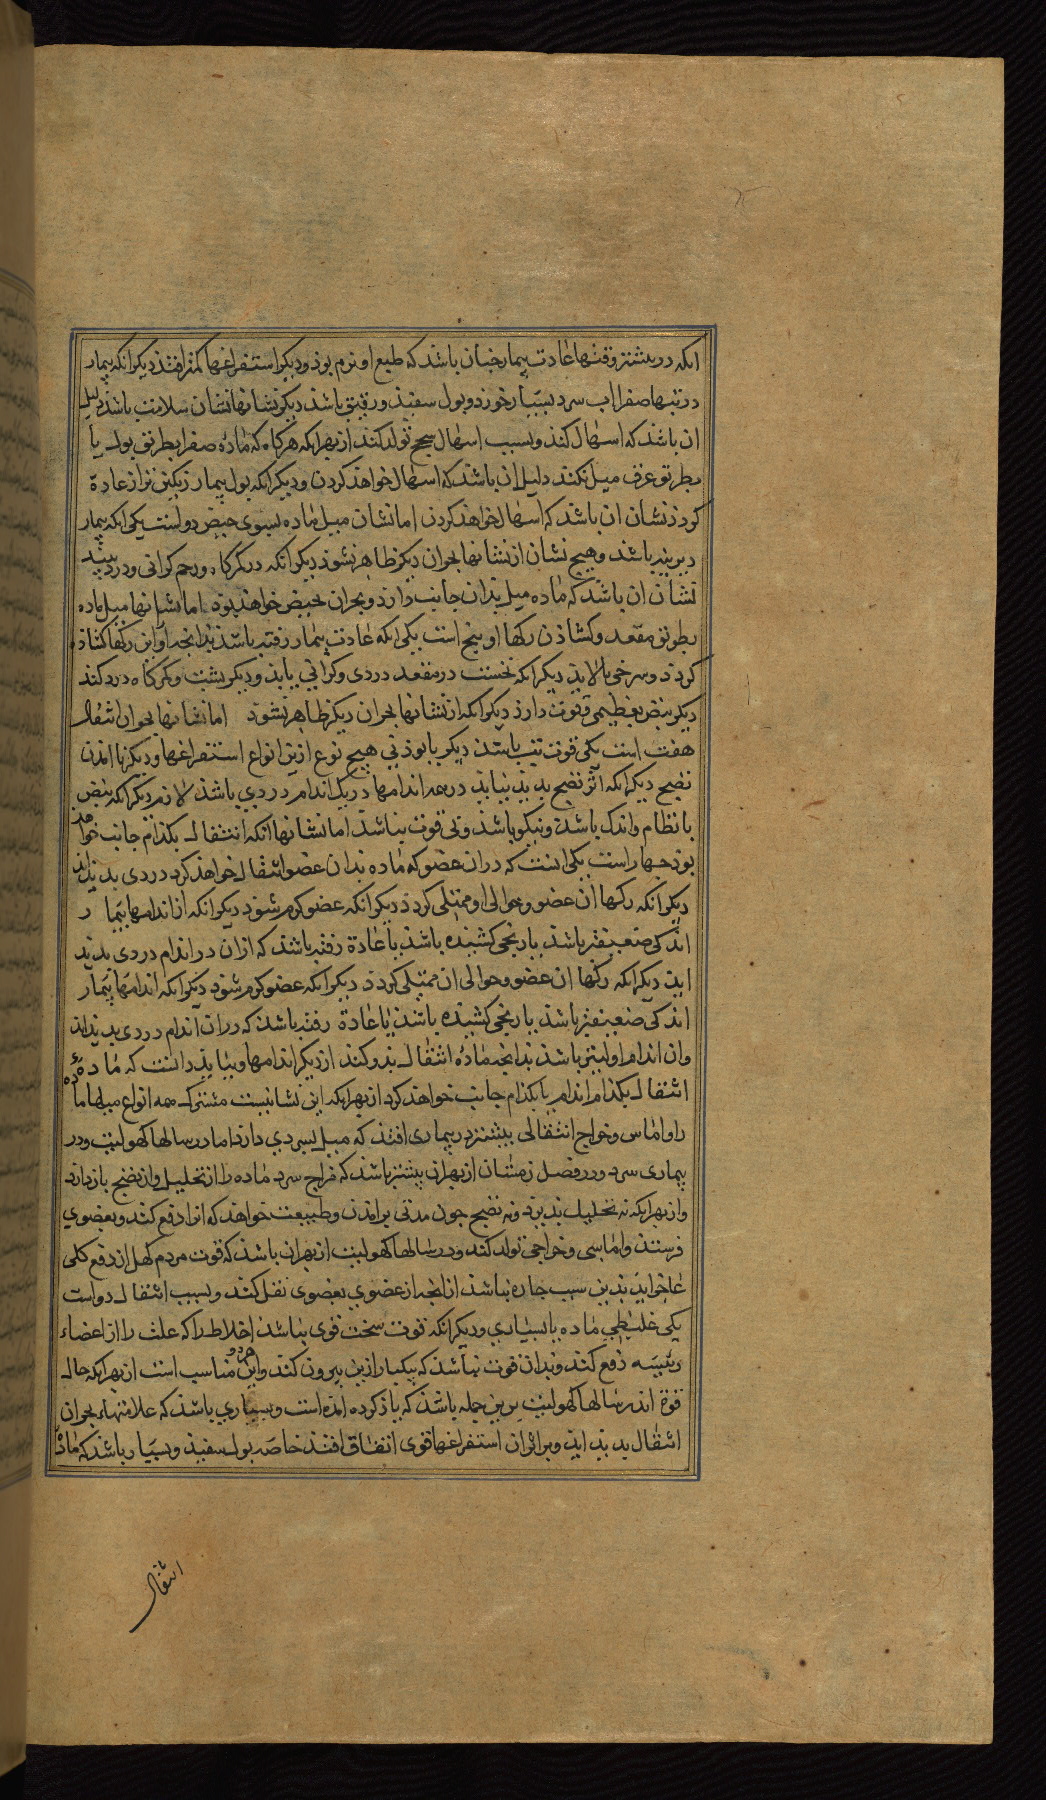 انکه در بیشتر وقتها عادت بیمار خبان باشد که طبع او نرم بوذ و دیکر استفراغها کمتر افتد دیکر انکه بیمار
در تبها صفرا اب سرد بسیار خورذ و بول سفید و رقیق باشد دیکر نشانها نشان سلامت باشذ دلیل
ان باشذ که اسهال کند و بسبب اسهال سحج تولد کند از بهر انکه هرکاه که ماده صفرا بطریق بول یا
بطریق عرق میل نکند دلیل ان باشد که اسهال خواهد کردن و دیکر انکه بول بیمار رنکین تر از عادة
کردد نشان ان باشد که اسهال خواهد کردن اما نشان میل ماده بسوی حیض دو است یکی انکه بیمار
دیرینه باشد و هیچ نشان از نشانها بحران دیکر ظاهر نشود دیکر انکه در کمرکاه و رحم کرانی و درد بیند
نشان ان باشد که ماده میل بدان جانب دارد و بحران بحیض خواهد بود اما نشانها میل ماده
بطریق مقعد و کشاذن رکها او پنج است یکی انکه عادت بیمار رفته باشد بدانچه او این رکها کشاذه
کردد و سرخی بالاید دیکر انکه نخست در مقعد دردی و کرانی یابد و دیکر پشت و کمرکاه درد کند
دیکر نبض بعظیمی و قوت دارد دیکر انکه از نشانها بحران دیکر ظاهر نشود اما نشانها بحران انتقال
هفت است یکی قوت تب باشد دیکر نابوذنی هیچ نوع ازین انواع استفراغها و دیکر نا امدن
نضج دیکر انکه اثر نضج بدید نیاید در همه اندامها در یک اندام دردی باشد لازم دیکر انکه نبض
با نظام و اندک باشد و نیکو باشد و بی قوت نباشد اما نشانها انکه انتقال بکدام جانب خواهد
بوذ چهار است یکی انست که در ان عضو که ماده بدان عضو انتقال خواهد کرد دردی بدید اید
دیکر انکه رکها ان عضو و حوالی او ممتلی کردد دیکر انکه عضو کرم شود دیکر انکه از اندامها بیمار
اندکی ضعیفتر باشد یا رنجی کشیده باشد یا عادة رفته باشد که از ان در اندام دردی بدید
اید دیکر انکه رکها ان عضو و حوالی ان ممتلی کردد دیکر انکه عضو کرم شود دیکر انکه اندامها بیمار
اندکی ضعیفتر باشد یا رنجی کشیده باشد یا عادة رفته باشد که در ان اندام دردی بدید اید
وان اندام اولیتر باشد بدانچه ماده انتقال بدو کند از دیکر اندامها و بباید دانست که ماده
انتقال بکدام اندام یا بکدام جانب خواهد کرد از بهر انکه این نشانیست مشترک همه انواع میلها ماده
را و اماس و خراج انتقالی بیشتر در بیماری افتد که میل بسردی دارد اما در سالها کهولیت و در
بیماری سرد و در فصل زمستان از بهر ان بیشتر باشد که مزاج سرد ماده را از تحلیل و از نضج باز دارد
و از بهر انکه نه تحلیل بذیرد و نه نضج چون مدتی بر امدن و طبیعت خواهد که انرا دفع کند و بعضوی
فرستد و اماسی و خراجی تولد کند و در سالها کهولیت از بهر ان باشد که قوت مردم کهل از دفع کلی
عاجز اید بدین سبب چاره نباشد از انچه از عضوی بعضوی نقل کند و بسبب انتقال دو است
یکی غلیظی ماده یا بسیاری و دیکر انکه قوت سخت قوی نباشد اخلاط را که علت را از اعضاء
رئیسه دفع کند و بدان قوت نباشد که بیکبار ازین بیرون کند و این هر دو مناسب است از بهر انکه حال
قوة اندر سالها کهولیت برین جمله باشد که یاذ کرده امده است و بسیاری باشد که علامتهاء بحران
انتقال بدید اید و بر اثر ان استفراغها قوی اتفاق افتد خاصه بول سفید و بسیار باشد که ماده
انتقال